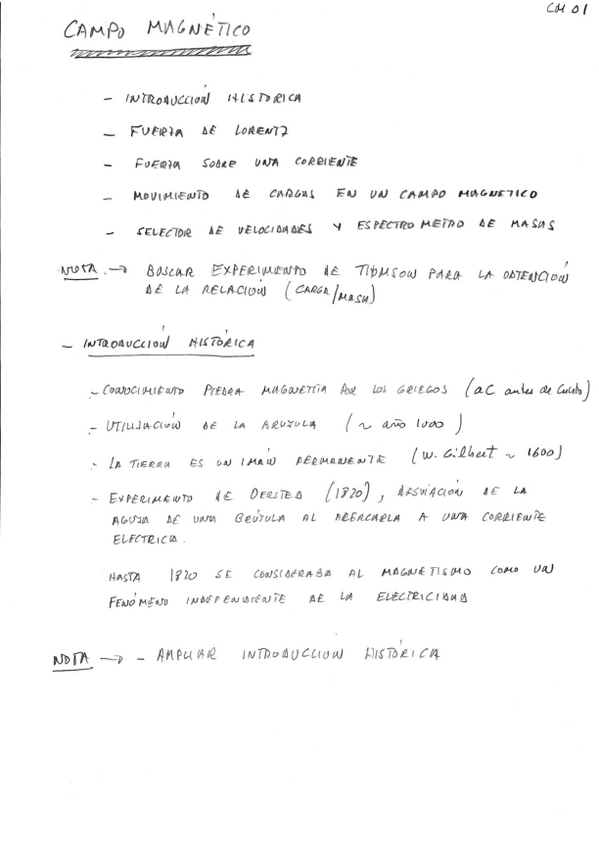 CM 01
CAMPO MAGNÉTICO
- INTRODUCCIÓN HISTORICA
- FUERZA DE LORENTZ
- FUERZA SOBRE UNA CORRIENTE
- MOVIMIENTO DE CARGAS EN UN CAMPO MAGNETICO
- SELECTOR DE VELOCIDADES Y ESPECTROMETRO DE MASAS
NOTA → BUSCAR EXPERIMENTO DE THOMSON PARA LA OBTENCIÓN
DE LA RELACIÓN (CARGA/MASA)
- INTRODUCCIÓN HISTÓRICA
- CONOCIMIENTO PIEDRA MAGNETITA POR LOS GRIEGOS (aC antes de Cristo)
- UTILIZACIÓN DE LA BRUJULA (~ año 1000)
- LA TIERRA ES UN IMÁN PERMANENTE (W. Gilbert ~ 1600)
- EXPERIMENTO DE OERSTED (1820), DESVIACIÓN DE LA
AGUJA DE UNA BRÚJULA AL ACERCARLA A UNA CORRIENTE
ELECTRICA.
HASTA 1820 SE CONSIDERABA AL MAGNETISMO COMO UN
FENÓMENO INDEPENDIENTE DE LA ELECTRICIDAD
NOTA → - AMPLIAR INTRODUCCIÓN HISTÓRICA